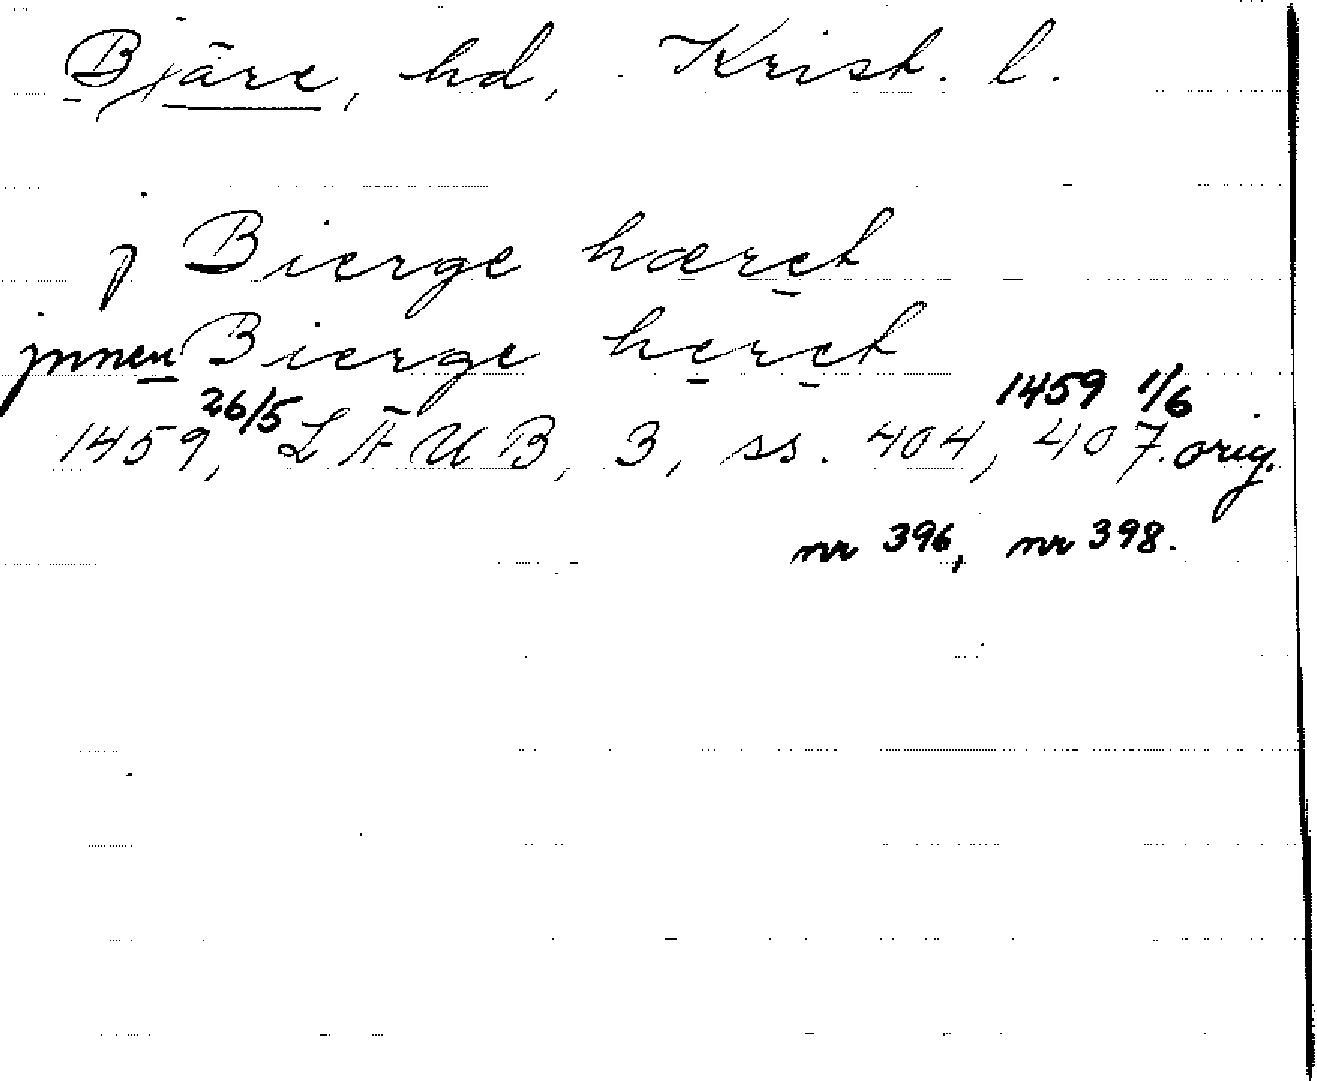 Bjäre, hd, Krist. l.
j Bierge hæret
jnnen Bierge heret
26/5 1459 1/6
1459, LÄUB, 3, ss. 404, 407. orig.
nr 396, nr 398.